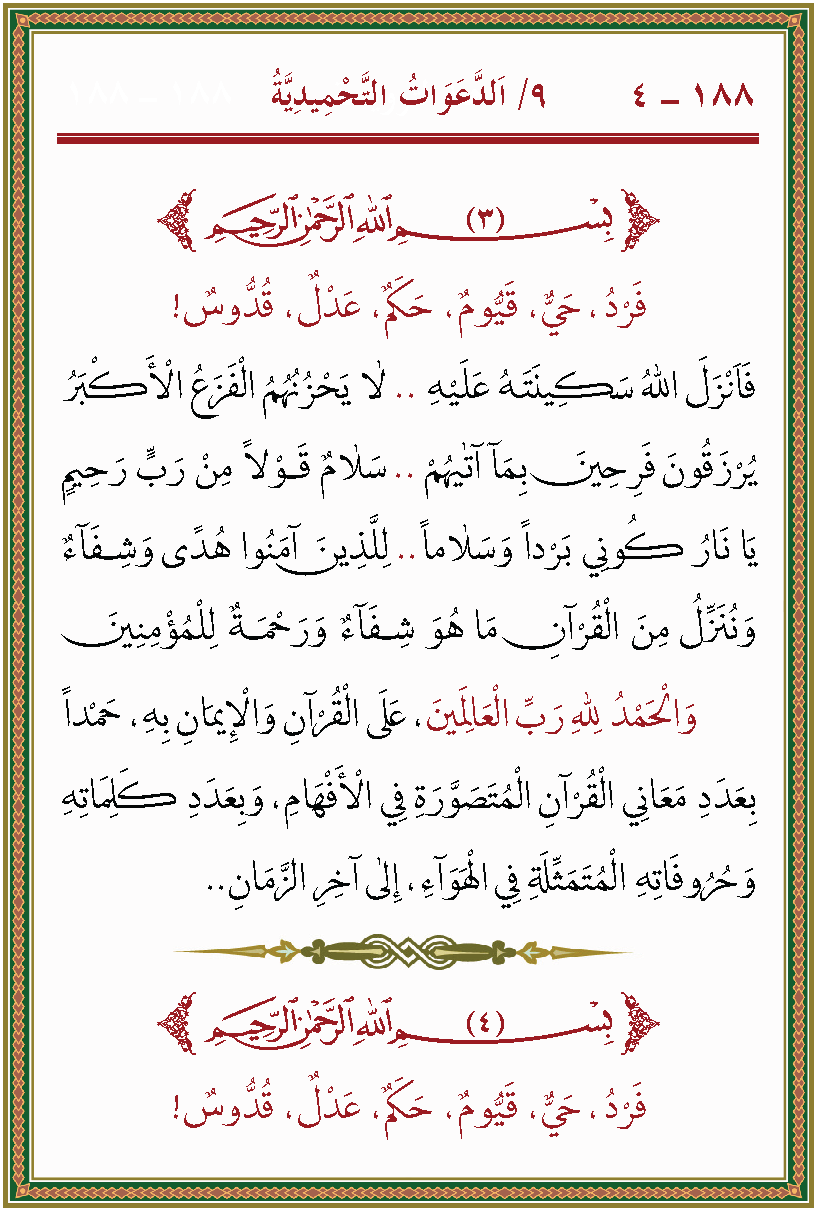 ١٨٨ – ٤ ٩/ اَلدَّعَوَاتُ التَّحْمِيدِيَّةُ ١٨٨ – ١٨٨
(٣) بِسْــمِ ٱللهِ ٱلرَّحْمٰنِ ٱلرَّحِيمِ
فَرْدٌ، حَيٌّ، قَيُّومٌ، حَكَمٌ، عَدْلٌ، قُدُّوسٌ!
فَاَنْزَلَ اللهُ سَكِينَتَهُ عَلَيْهِ .. لَا يَحْزُنُهُمُ الْفَزَعُ الْأَكْبَرُ
يُرْزَقُونَ فَرِحِينَ بِمَآ آتٰيهُمْ .. سَلَامٌ قَوْلاً مِنْ رَبٍّ رَحِيمٍ
يَا نَارُ كُونِي بَرْداً وَسَلَاماً .. لِلَّذِينَ آمَنُوا هُدًى وَشِفَآءٌ
وَنُنَزِّلُ مِنَ الْقُرْآنِ مَا هُوَ شِفَآءٌ وَرَحْمَةٌ لِلْمُؤْمِنِينَ
وَالْحَمْدُ لِلهِ رَبِّ الْعَالَمِينَ، عَلَى الْقُرْآنِ وَالْاِيمَانِ بِهِ، حَمْداً
بِعَدَدِ مَعَانِي الْقُرْآنِ الْمُتَصَوَّرَةِ فِي الْأَفْهَامِ، وَبِعَدَدِ كَلِمَاتِهِ
وَحُرُوفَاتِهِ الْمُتَمَثِّلَةِ فِي الْهَوَآءِ، اِلٰى آخِرِ الزَّمَانِ..
(٤) بِسْــمِ ٱللهِ ٱلرَّحْمٰنِ ٱلرَّحِيمِ
فَرْدٌ، حَيٌّ، قَيُّومٌ، حَكَمٌ، عَدْلٌ، قُدُّوسٌ!